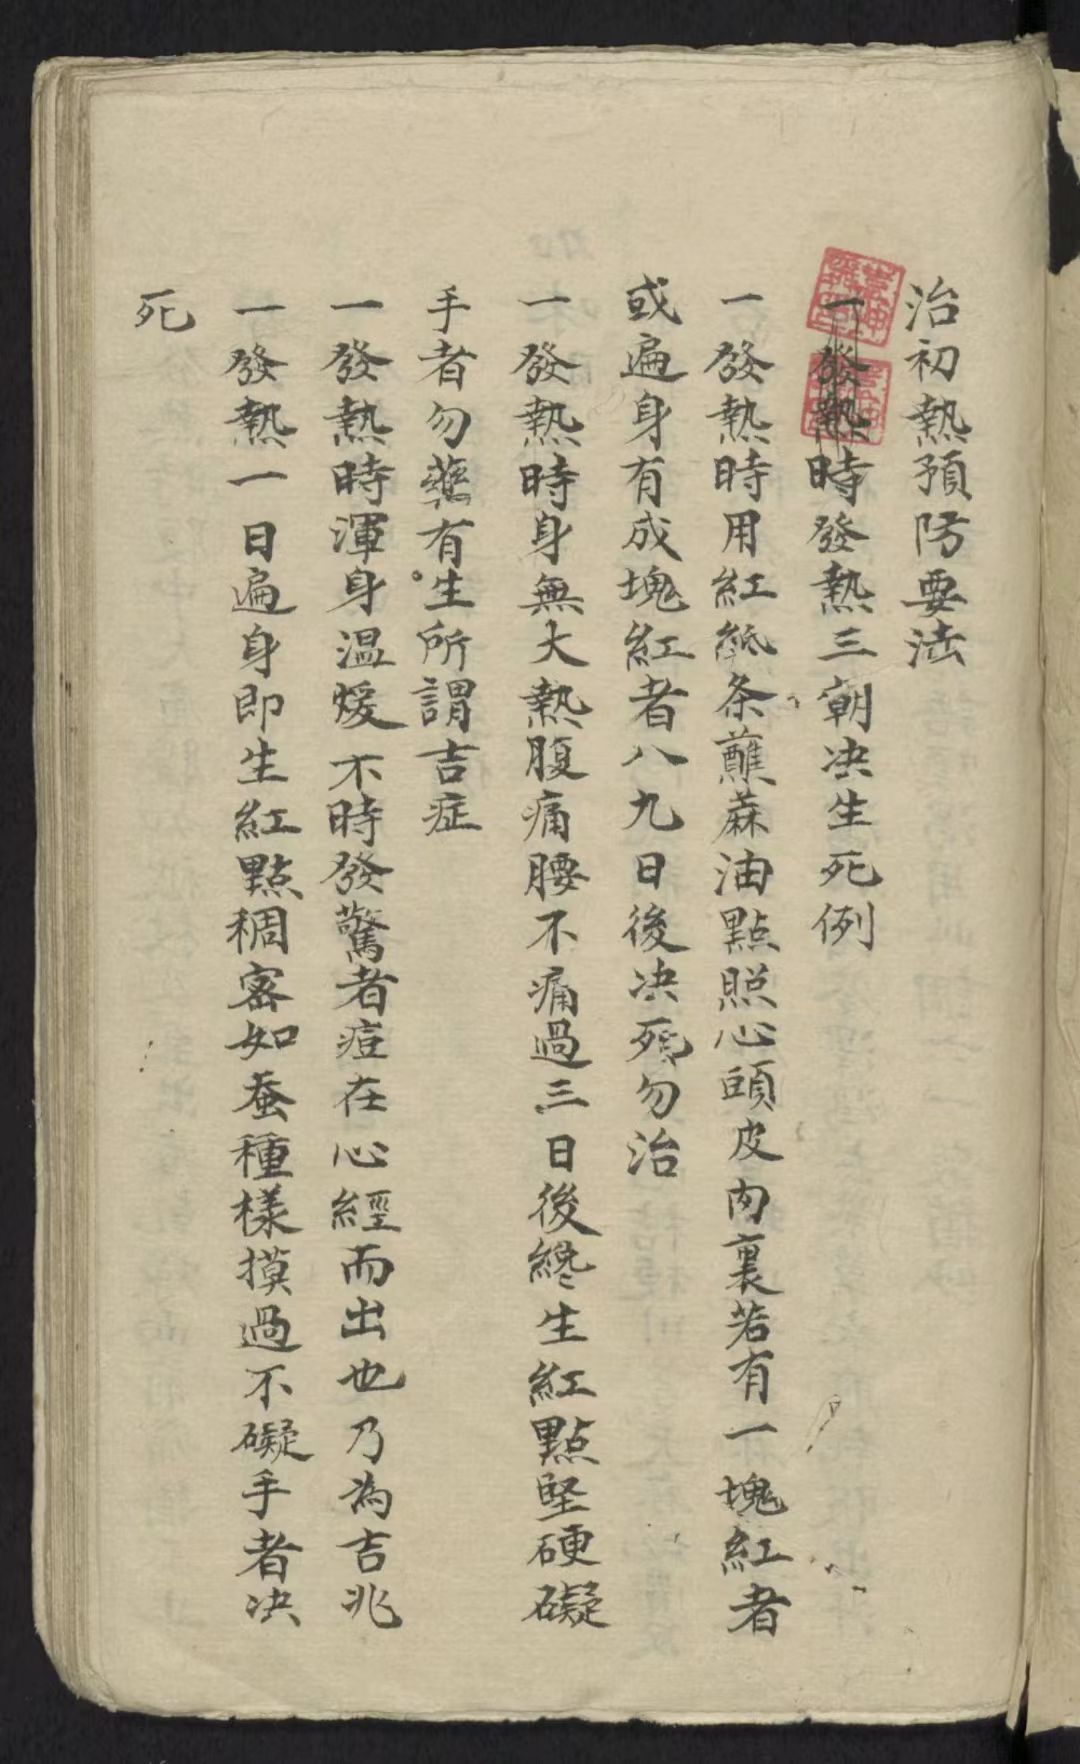 治初熱預防要法
一發熱時發熱三朝决生死例
一發熱時用紅紙条蘸蔴油點照心頭皮肉裏若有一塊紅者
或遍身有成塊紅者八九日後决死勿治
一發熱時身無大熱腹痛腰不痛過三日後纔生紅點堅硬礙
手者勿藥有生所謂吉症
一發熱時渾身温煖不時發驚者痘在心經而出也乃為吉兆
一發熱一日遍身即生紅點稠密如蚕種樣摸過不礙手者决
死